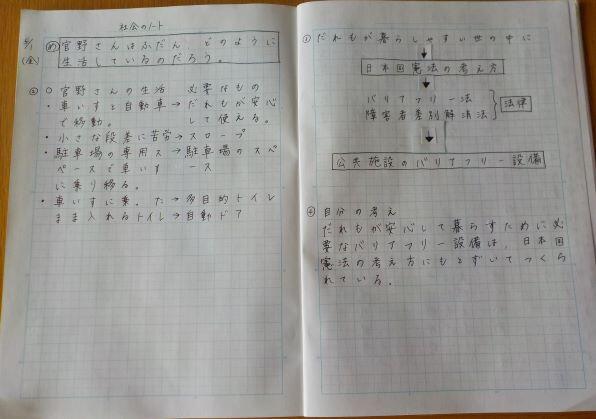 社会のノート
5/1
(金)
め 宮野さんはふだん、どのように
生活しているのだろう。
② ○ 宮野さんの生活 必要なもの
・車いすと自動車→だれもが安心
で移動。 して使える。
・小さな段差に苦労→スロープ
・駐車場の専用ス→駐車場のスペ
ペースで車いす ース
に乗り移る。
・車いすに乗った→多目的トイレ
まま入れるトイレ→自動ドア
③ だれもが暮らしやすい世の中に
日本国憲法の考え方
バリアフリー法
障害者差別解消法
法律
公共施設のバリアフリー設備
④ 自分の考え
だれもが安心して暮らすために必
要なバリアフリー設備は、日本国
憲法の考え方にもとずいてつくら
れている。